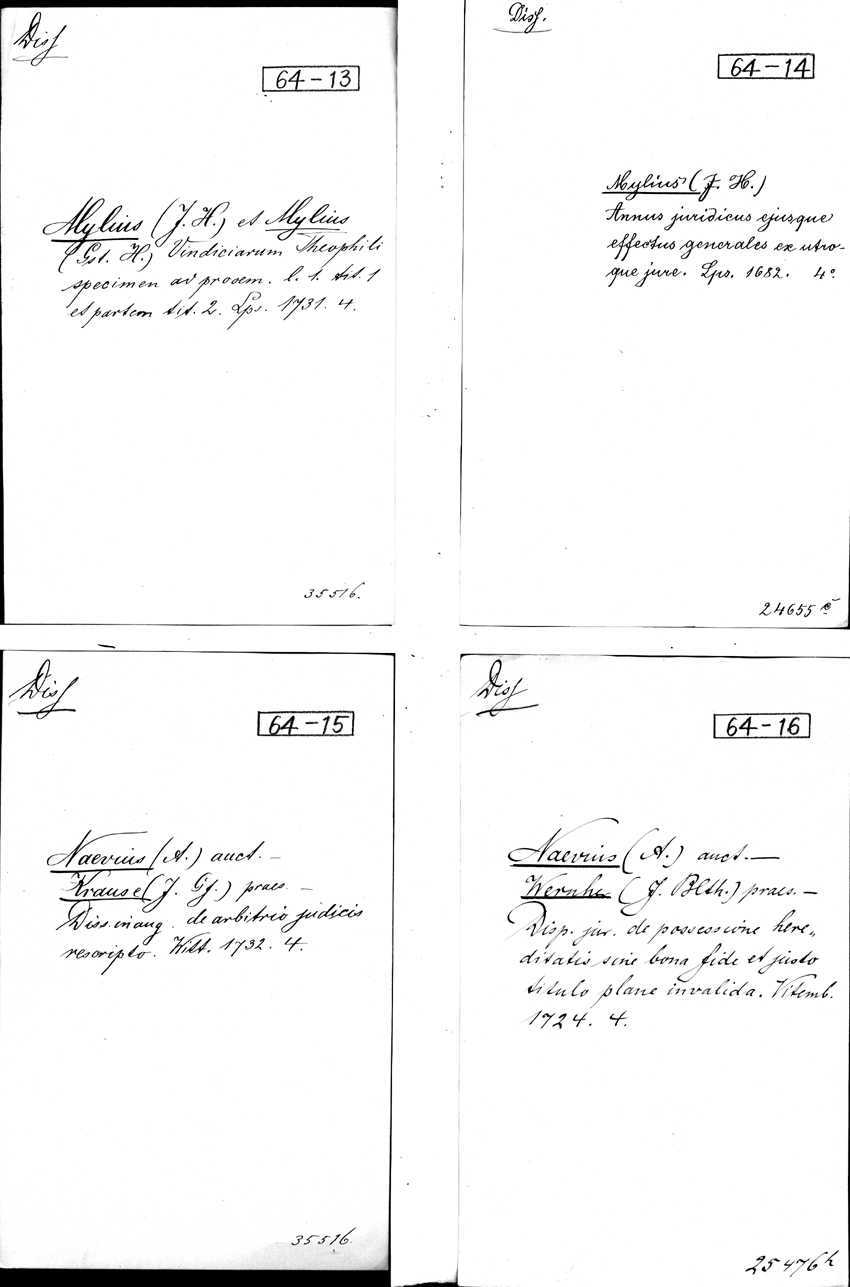 Diss
64-13
Mylius (J. H.) et Mylius
(Gst. H.) Vindiciarum Theophili
specimen ad prooem. l. 1. tit. 1
et partem tit. 2. Lps. 1731. 4.
35516.
Diss.
64-14
Mylius (J. H.)
Annus juridicus ejusque
effectus generales ex utro-
que jure. Lps. 1682. 4º
24655
Diss
64-15
Naevius (A.) auct. —
Krause (J. Gf.) praes. —
Diss. inaug. de arbitrio judicis
rescripto. Witt. 1732. 4.
35516.
Diss
64-16
Naevius (A.) auct. —
Wernhe (J. Blth.) praes. —
Disp. jur. de possessione here„
ditatis sine bona fide et justo
titulo plane invalida. Vitemb.
1724. 4.
25476h